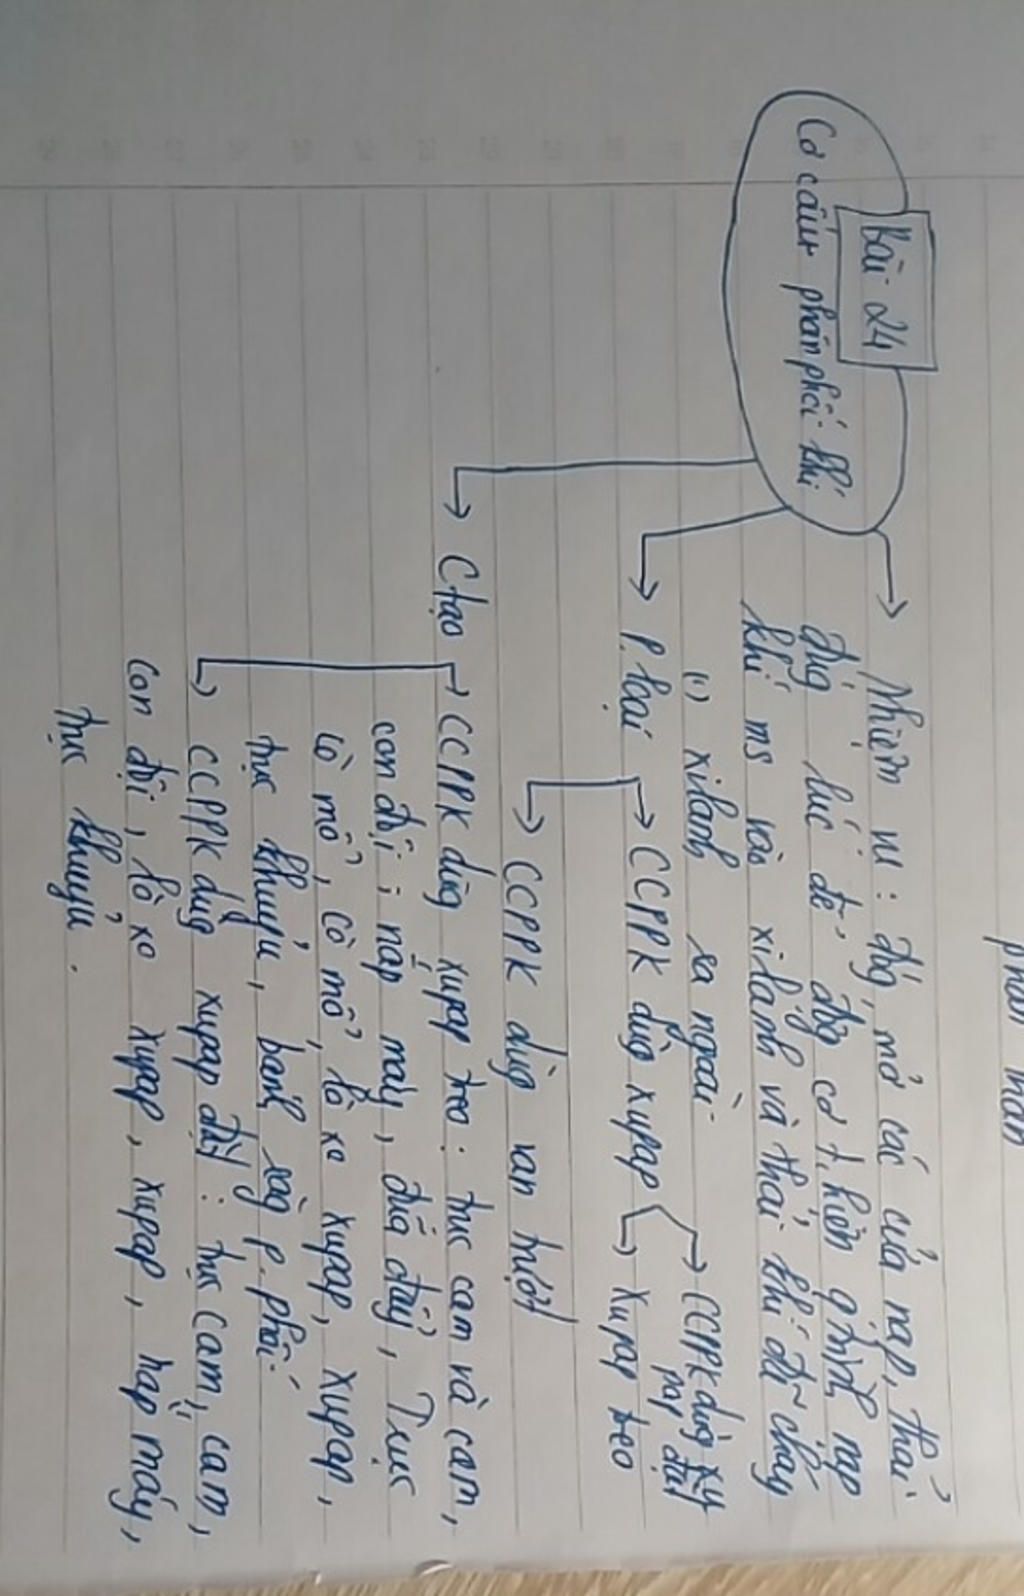 Bài 24
Cơ cấu phân phối khí
Nhiệm vụ: đóng, mở các cửa nạp, thải
đúng lúc để động cơ t.hiện q.trình nạp
khí ms vào xilanh và thải khí đã cháy
(1) xilanh ra ngoài.
P.loại
CCPPK dùng xupap
CCPPK dùng xu
pap đặt
Xupap treo
CCPPK dùng van trượt
C tạo
CCPPK dùng xupap treo: trục cam và cam,
con đội, nắp máy, đũa đẩy, Trục
cò mổ, cò mổ, lò xo xupap, xupap,
trục khuỷu, bánh răng p.phối.
CCPPK dùng xupap đặt: trục cam, cam,
con đội, lò xo xupap, xupap, nắp máy,
trục khuỷu.
phân